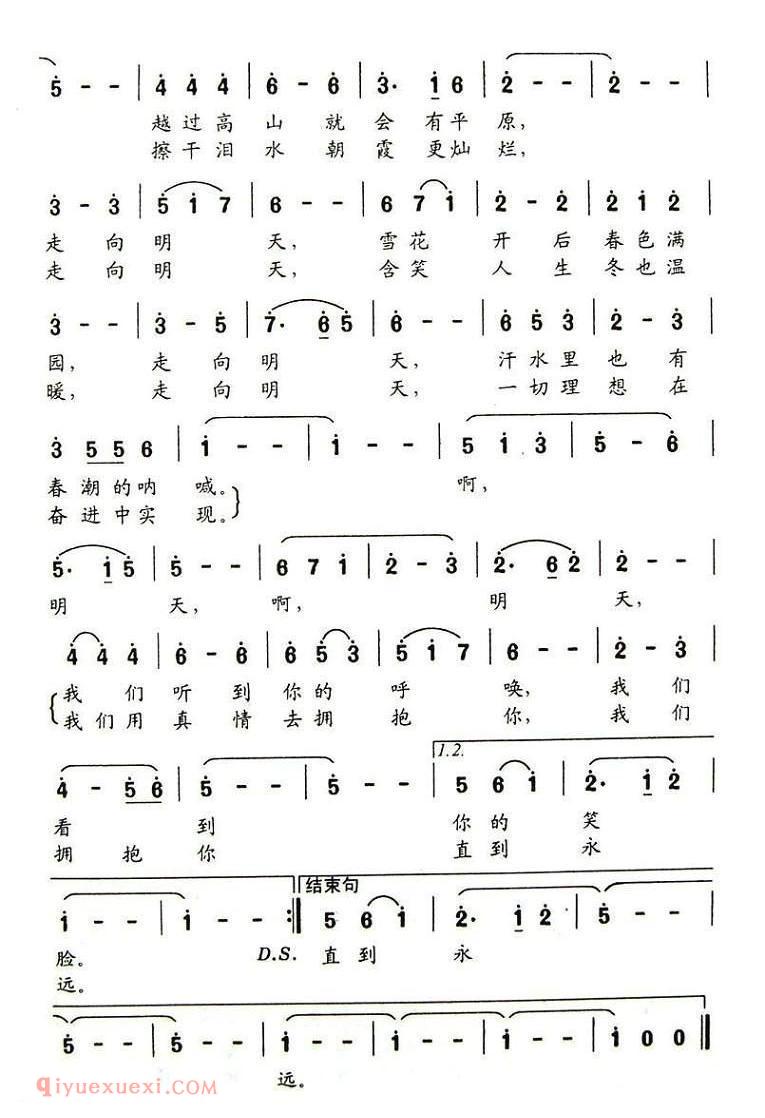 5 - - | 4 4 4 | 6 - 6 | 3· 1 6 | 2 - - | 2 - - |
越过高山就会有平原，
擦干泪水朝霞更灿烂，
3 - 3 | 5 1 7 | 6 - - | 6 7 1 | 2 - 2 | 2 1 2 |
走向明天，雪花开后春色满
走向明天，含笑人生冬也温
3 - - | 3 - 5 | 7· 6 5 | 6 - - | 6 5 3 | 2 - 3 |
园，走向明天，汗水里也有
暖，走向明天，一切理想在
3 5 5 6 | 1 - - | 1 - - | 5 1 3 | 5 - 6 |
春潮的呐喊。啊，
奋进中实现。
5· 1 5 | 5 - - | 6 7 1 | 2 - 3 | 2· 6 2 | 2 - - |
明天，啊，明天，
4 4 4 | 6 - 6 | 6 5 3 | 5 1 7 | 6 - - | 2 - 3 |
我们听到你的呼唤，我们
我们用真情去拥抱你，我们
1.2.
4 - 5 6 | 5 - - | 5 - - | 5 6 1 | 2· 1 2 |
看到你的笑
拥抱你直到永
结束句
1 - - | 1 - - :| 5 6 1 | 2· 1 2 | 5 - - |
脸。D.S.直到永
远。
5 - - | 5 - - | 1 - - | 1 - - | 1 - - | 1 0 0 ‖
远。
qiyuexuexi.com